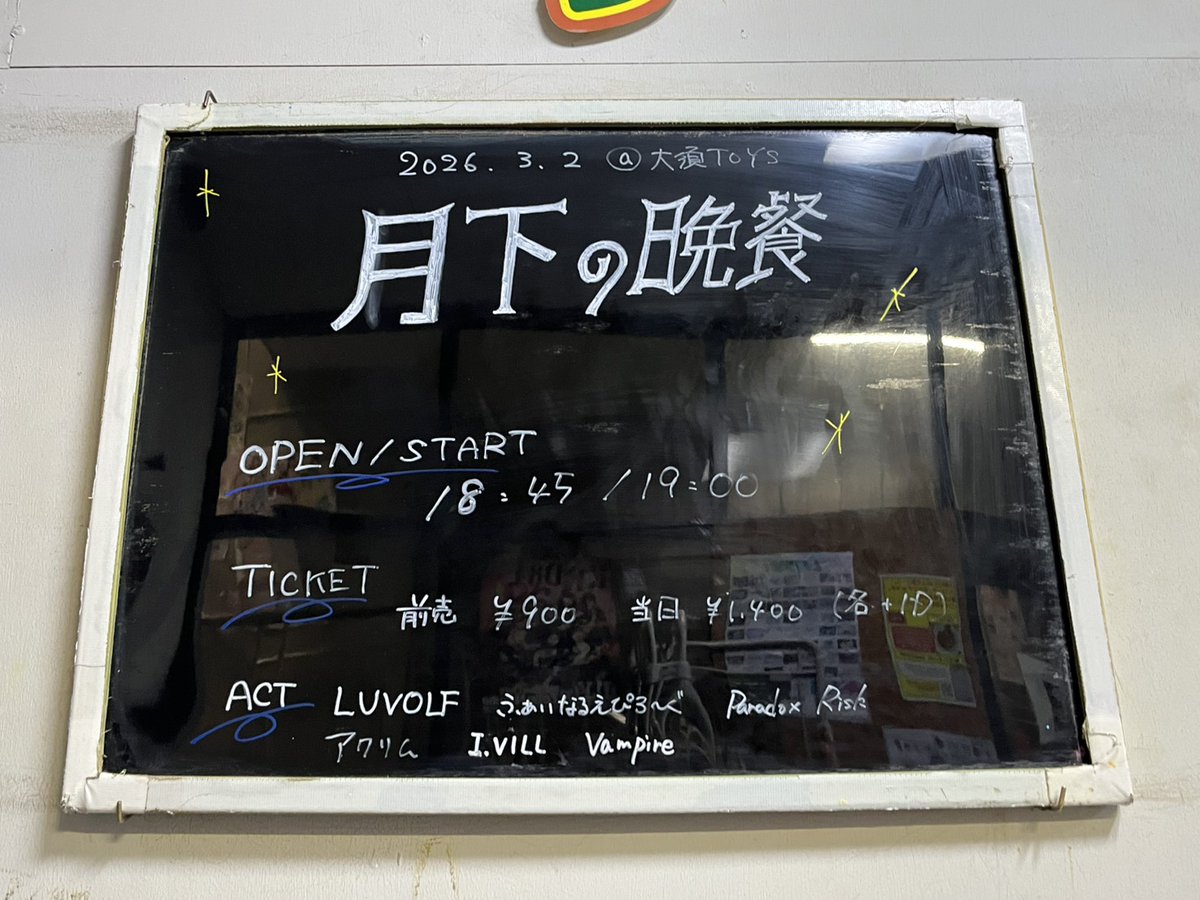 2026.3.2 @大須TOYS
月下の晩餐
OPEN/START
18:45 /19:00
TICKET
前売 ¥900 当日 ¥1,400 (各+1D)
ACT LUVOLF ふぁいなるえぴろーぐ Paradox Risk
アクリム I.VILL Vampire